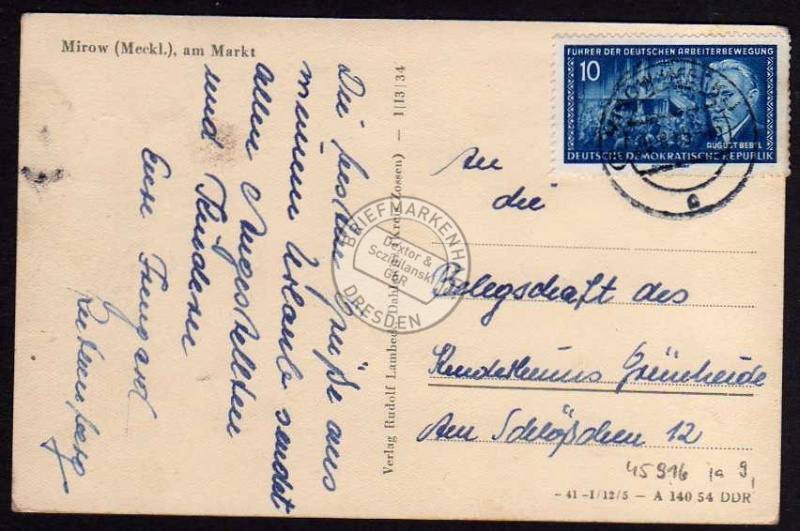 Mirow (Meckl.), am Markt
Die besten Grüße aus
meinem Urlaub sendet
allen Angestellten
und Kindern
Eure Irmgard
FÜHRER DER DEUTSCHEN ARBEITERBEWEGUNG
10
AUGUST BEBEL
DEUTSCHE DEMOKRATISCHE REPUBLIK
a
An
die
Belegschaft des
Kinderheims Grünheide
Am Schlößchen 12
45916 ia 9,
-41-I/12/5 - A 140 54 DDR
Verlag Rudolf Lambeck (Kreis Zossen) - 1|13|34
BRIEFMARKENH
Dextor &
Sczibilanski
GbR
DRESDEN